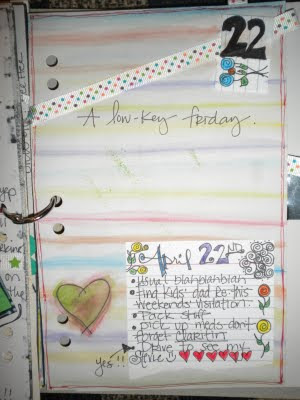 22
A low-key friday.
April 22ND
• Usual blahblahblah
• Find kids' dad Re: this
weekend's visitation.
• Pack stuff
• pick up meds-don't
forget claritin
• Drive to see my
yes!!